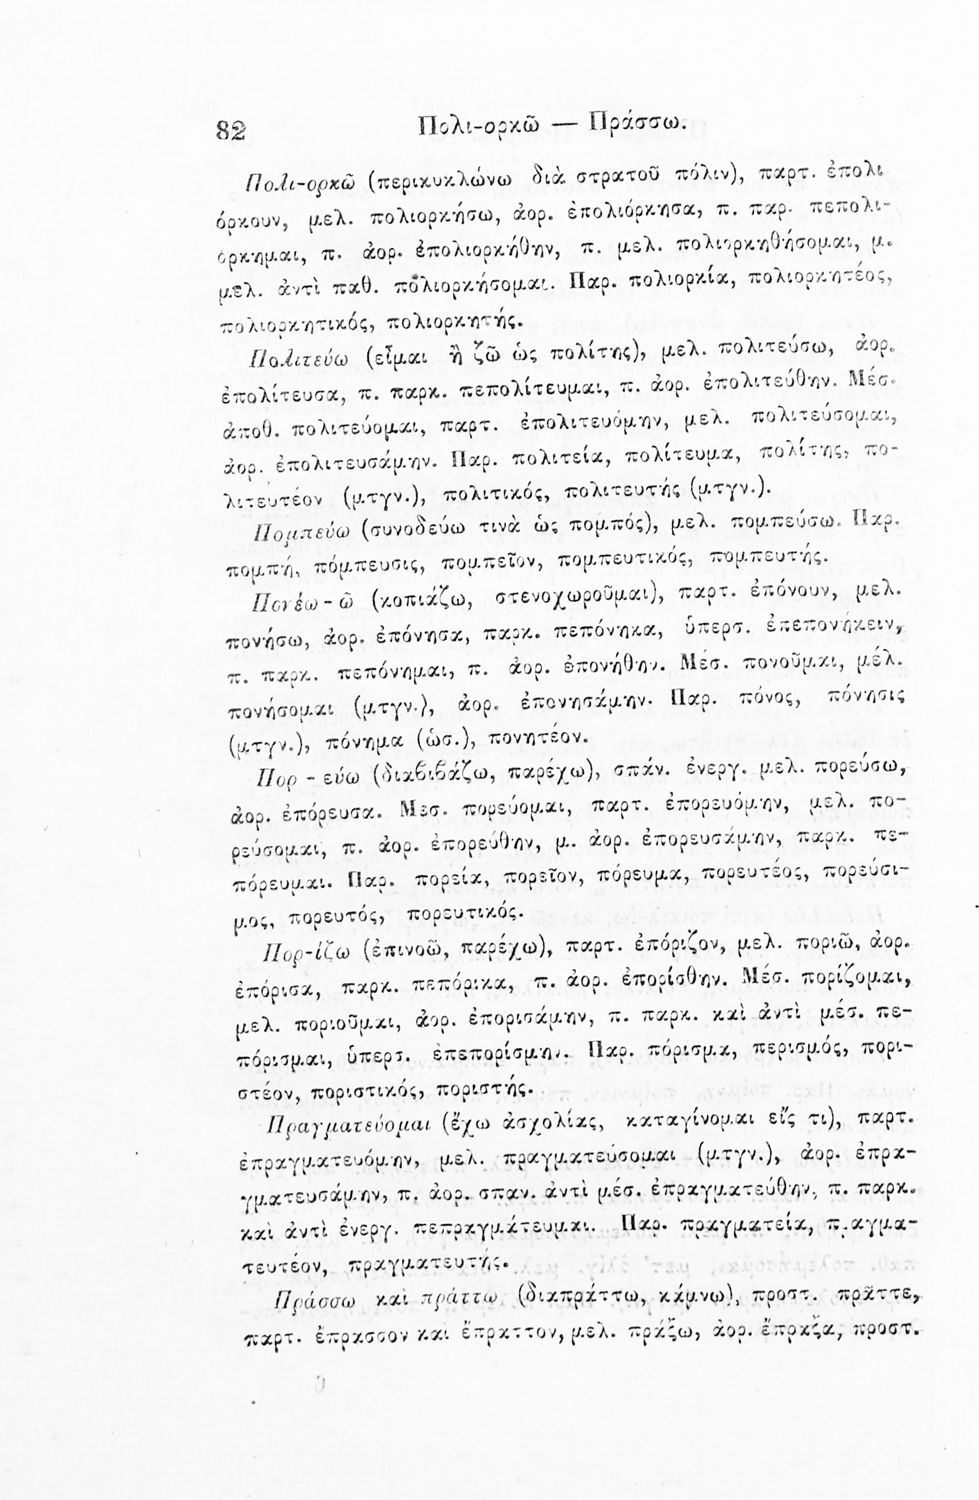 82 Πολι-ορκῶ — Πράσσω.
Πολι-ορκῶ (περικυκλώνω διὰ στρατοῦ πόλιν), παρτ. ἐπολι
όρκουν, μελ. πολιορκήσω, ἀορ. ἐπολιόρκησα, π. παρ. πεπολι-
όρκημαι, π. ἀορ. ἐπολιορκήθην, π. μελ. πολιορκηθήσομαι, μ.
μελ. ἀντὶ παθ. πολιορκήσομαι. Παρ. πολιορκία, πολιορκητέος,
πολιορκητικός, πολιορκητής.
Πολιτεύω (εἶμαι ἢ ζῶ ὡς πολίτης), μελ. πολιτεύσω, ἀορ.
ἐπολίτευσα, π. παρκ. πεπολίτευμαι, π. ἀορ. ἐπολιτεύθην. Μέσ.
ἀποθ. πολιτεύομαι, παρτ. ἐπολιτευόμην, μελ. πολιτεύσομαι,
ἀορ. ἐπολιτευσάμην. Παρ. πολιτεία, πολίτευμα, πολίτης, πο-
λιτευτέον (μτγν.), πολιτικός, πολιτευτής (μτγν.).
Πομπεύω (συνοδεύω τινὰ ὡς πομπός), μελ. πομπεύσω. Παρ.
πομπή, πόμπευσις, πομπεῖον, πομπευτικός, πομπευτής.
Πονέω - ῶ (κοπιάζω, στενοχωροῦμαι), παρτ. ἐπόνουν, μελ.
πονήσω, ἀορ. ἐπόνησα, παρκ. πεπόνηκα, ὑπερσ. ἐπεπονήκειν,
π. παρκ. πεπόνημαι, π. ἀορ. ἐπονήθην. Μέσ. πονοῦμαι, μέλ.
πονήσομαι (μτγν.), ἀορ. ἐπονησάμην. Παρ. πόνος, πόνησις
(μτγν.), πόνημα (ὡσ.), πονητέον.
Πορ - εύω (διαβιβάζω, παρέχω), σπάν. ἐνεργ. μελ. πορεύσω,
ἀορ. ἐπόρευσα. Μεσ. πορεύομαι, παρτ. ἐπορευόμην, μελ. πο-
ρεύσομαι, π. ἀορ. ἐπορεύθην, μ. ἀορ. ἐπορευσάμην, παρκ. πε-
πόρευμαι. Παρ. πορεία, πορεῖον, πόρευμα, πορευτέος, πορεύσι-
μος, πορευτός, πορευτικός.
Πορ-ίζω (ἐπινοῶ, παρέχω), παρτ. ἐπόριζον, μελ. ποριῶ, ἀορ.
ἐπόρισα, παρκ. πεπόρικα, π. ἀορ. ἐπορίσθην. Μέσ. πορίζομαι,
μελ. ποριοῦμαι, ἀορ. ἐπορισάμην, π. παρκ. καὶ ἀντὶ μέσ. πε-
πόρισμαι, ὑπερσ. ἐπεπορίσμην. Παρ. πόρισμα, περισμός, πορι-
στέον, ποριστικός, ποριστής.
Πραγματεύομαι (ἔχω ἀσχολίας, καταγίνομαι εἴς τι), παρτ.
ἐπραγματευόμην, μελ. πραγματεύσομαι (μτγν.), ἀορ. ἐπρα-
γματευσάμην, π. ἀορ. σπαν. ἀντὶ μέσ. ἐπραγματεύθην, π. παρκ.
καὶ ἀντὶ ἐνεργ. πεπραγμάτευμαι. Παρ. πραγματεία, πραγμα-
τευτέον, πραγματευτής.
Πράσσω καὶ πράττω (διαπράττω, κάμνω), προστ. πρᾶττε,
παρτ. ἔπρασσον και ἔπραττον, μελ. πράξω, ἀορ. ἔπραξα, προστ.